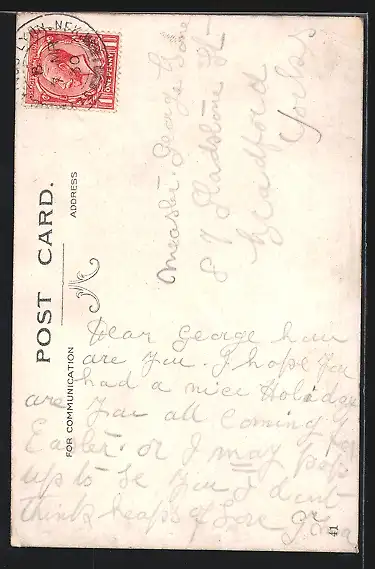 POST CARD.
FOR COMMUNICATION
ADDRESS
ONE PENNY
Master George
Gladstone St
Bradford
Yorks
Dear George how
are you. I hope you
had a nice Holiday
are you all coming for
Easter. or I may pop
up to se you I dont
think heaps of love
41